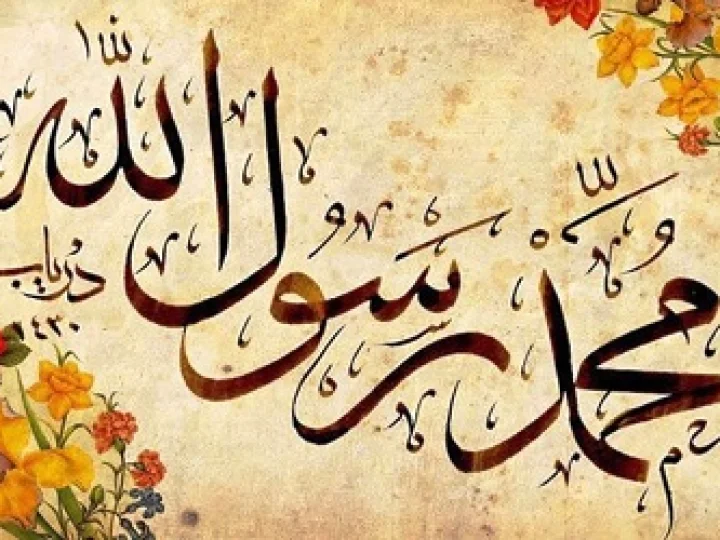 مُحَمَّدْ رَسُولُ اللّٰه
دُرْيَاب
١٤٣٠